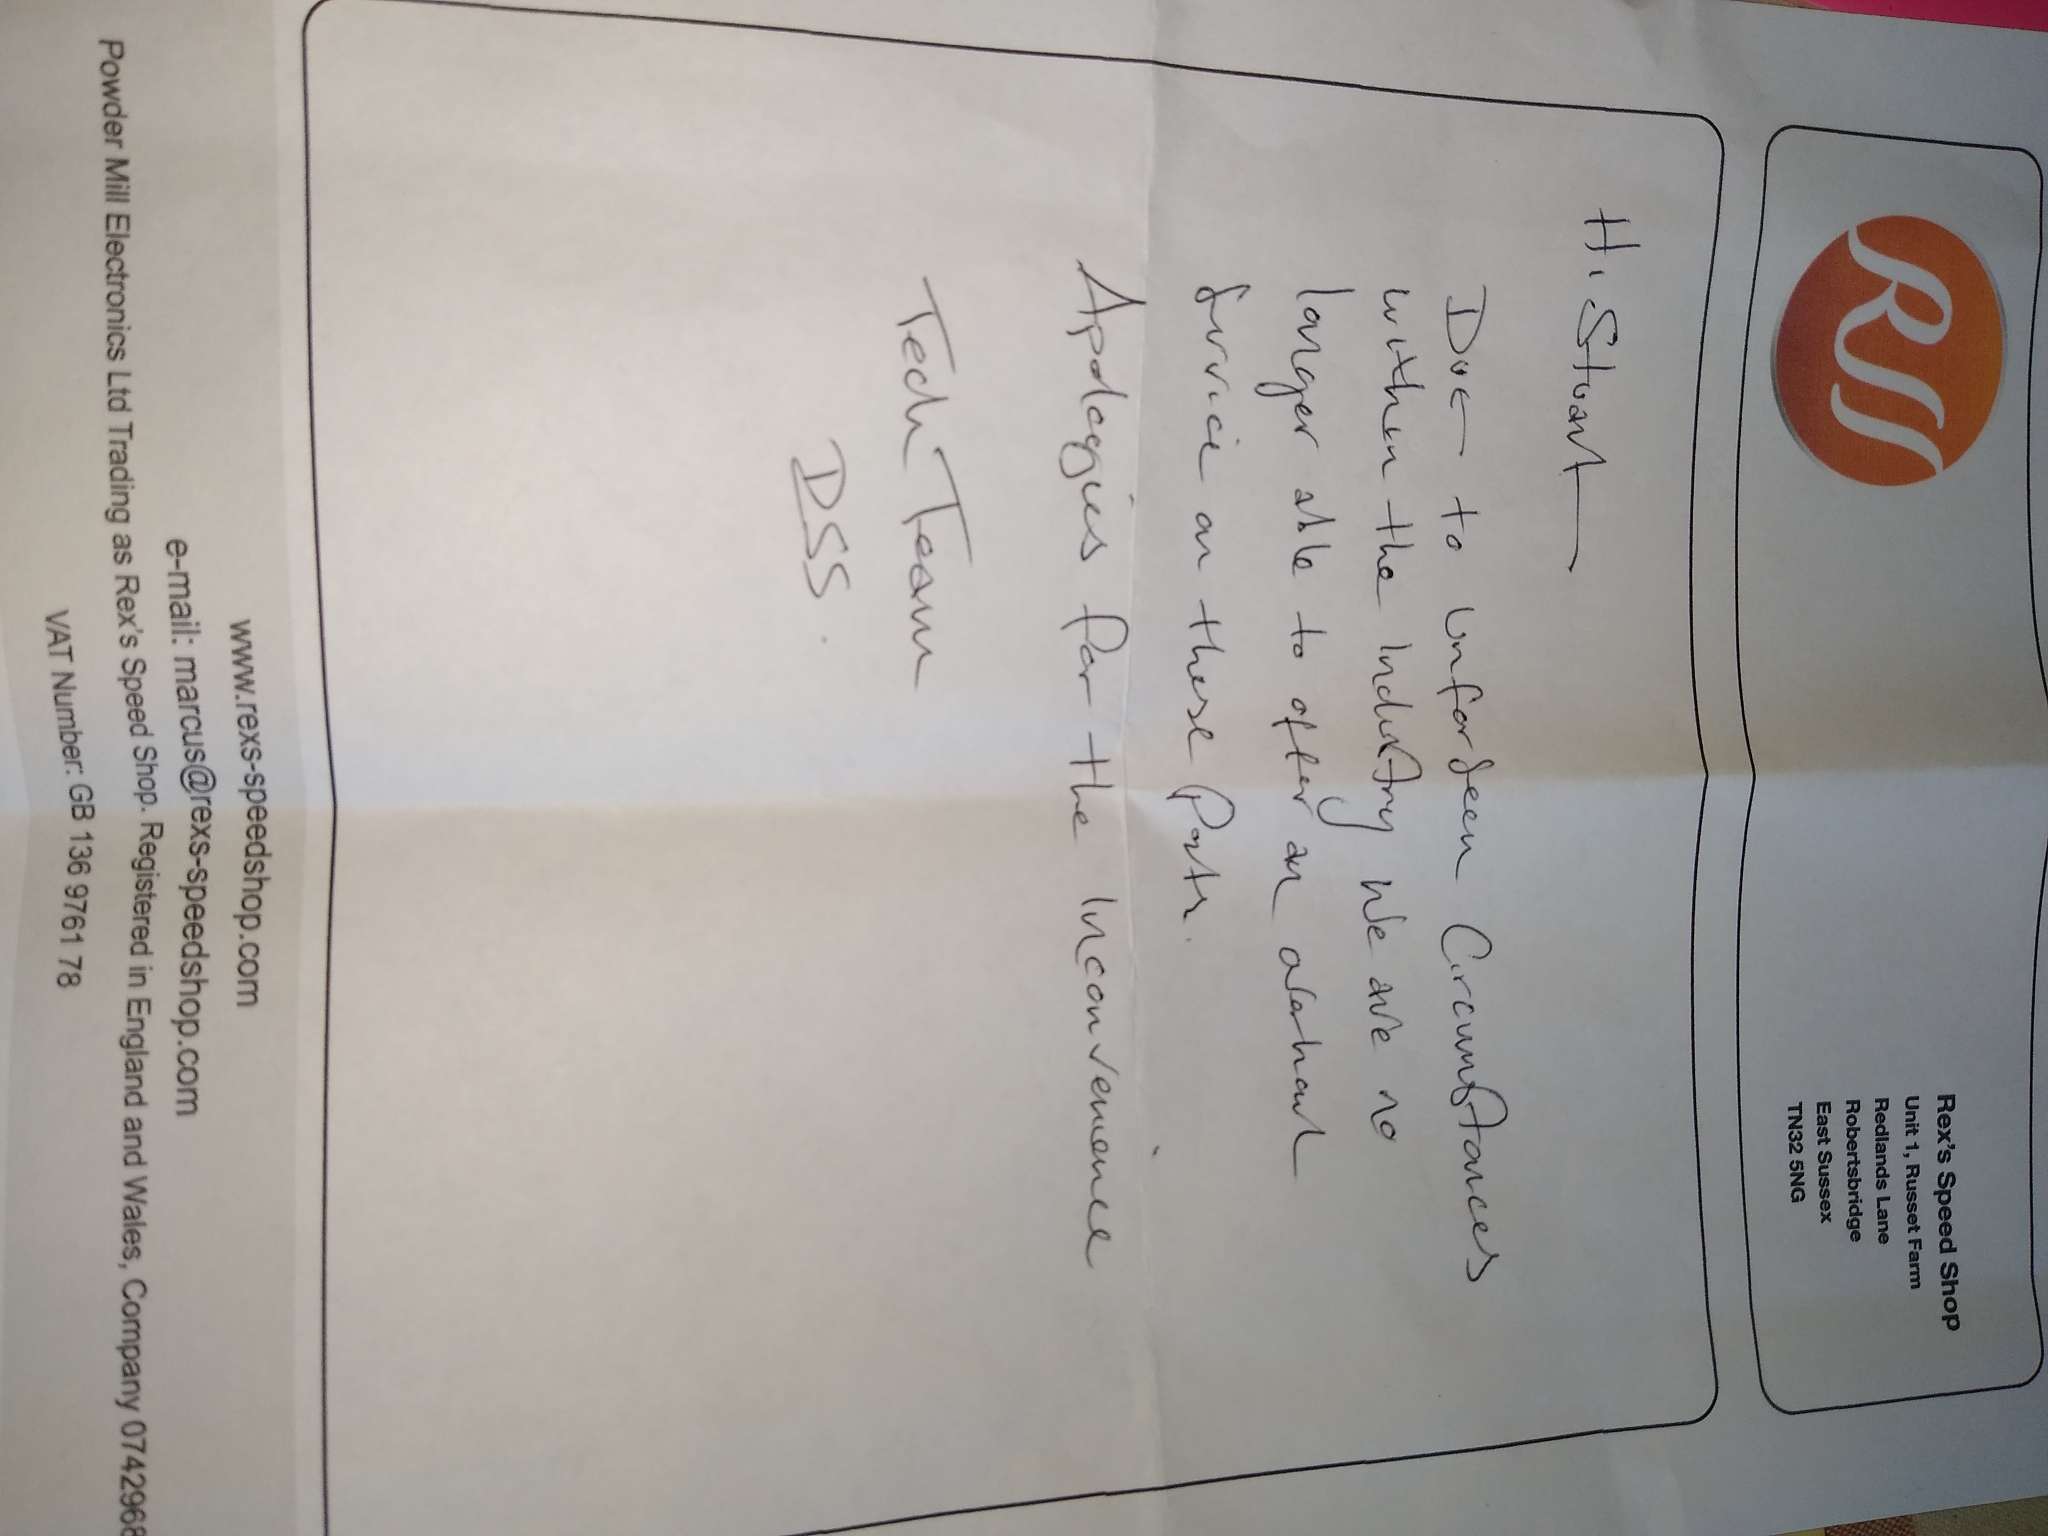 RSS
Rex's Speed Shop
Unit 1, Russet Farm
Redlands Lane
Robertsbridge
East Sussex
TN32 5NG
Hi Stuart
Due to unforseen Circumstances
within the Industry we are no
longer able to offer an overhaul
Service on these Parts.
Apologies for the Inconvenience
Tech Team
DSS.
www.rexs-speedshop.com
e-mail: marcus@rexs-speedshop.com
Powder Mill Electronics Ltd Trading as Rex's Speed Shop. Registered in England and Wales, Company 0742968
VAT Number: GB 136 9761 78